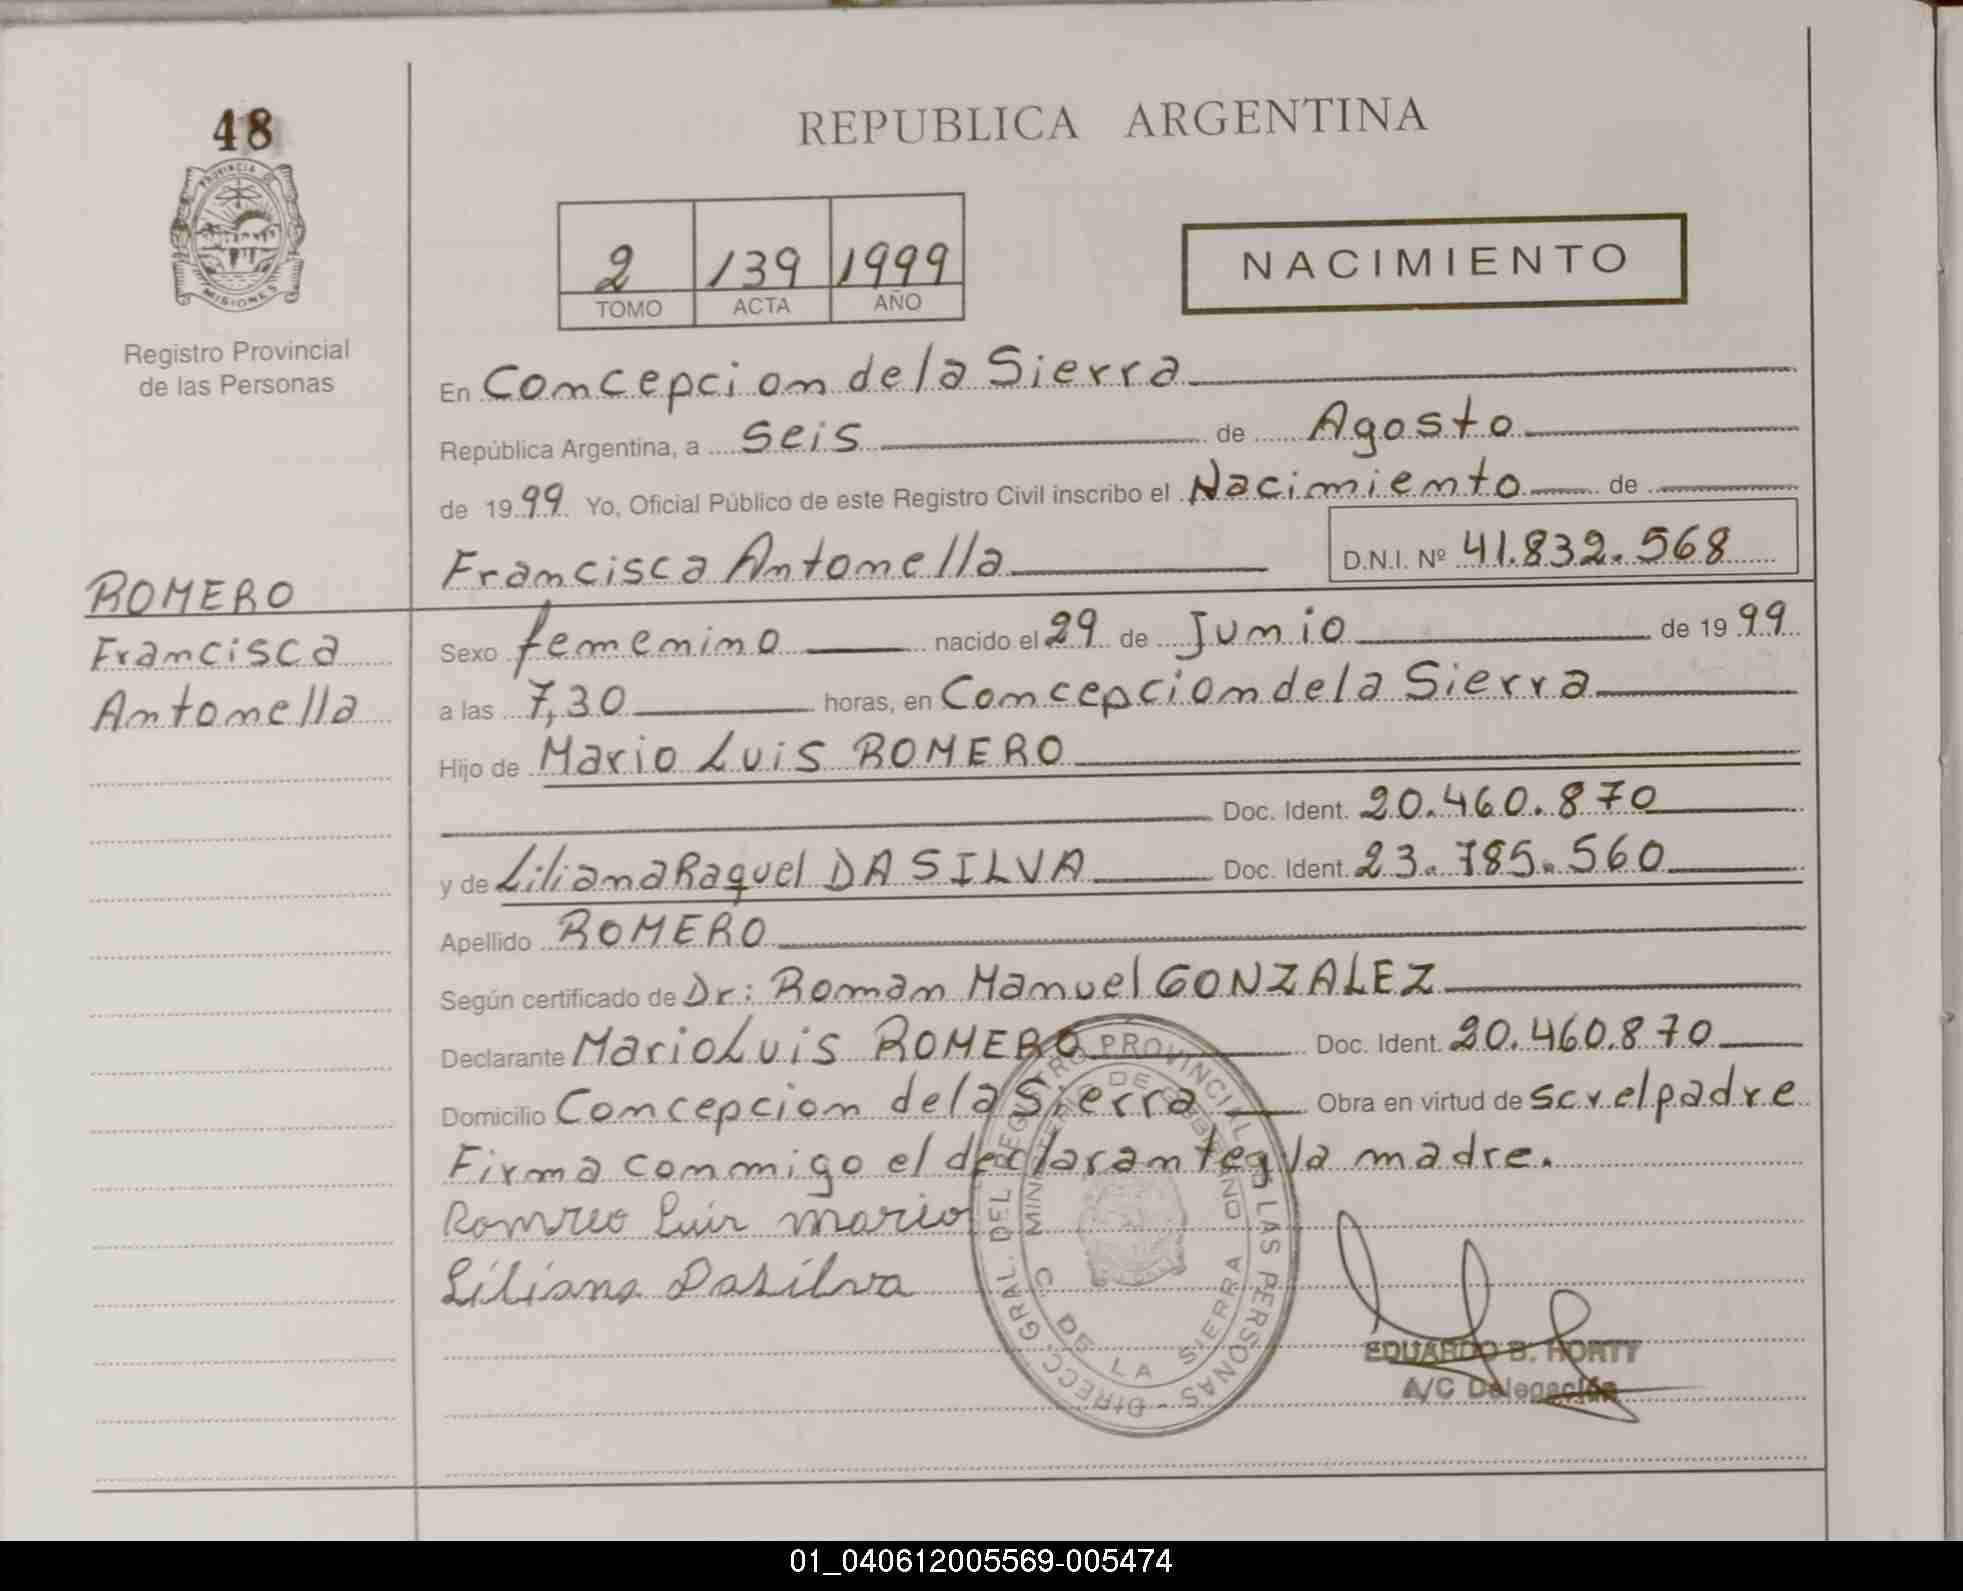 48
PROVINCIA DE
MISIONES
Registro Provincial
de las Personas
REPUBLICA ARGENTINA
2 139 1999
TOMO ACTA AÑO
NACIMIENTO
En Concepcion de la Sierra
República Argentina, a seis de Agosto
de 1999 Yo, Oficial Público de este Registro Civil inscribo el Nacimiento de
Francisca Antonella D.N.I. Nº 41.832.568
ROMERO
Francisca
Antonella
Sexo femenino nacido el 29 de Junio de 1999
a las 7,30 horas, en Concepcion de la Sierra
Hijo de Mario Luis ROMERO
Doc. Ident. 20.460.870
y de Liliana Raquel DA SILVA Doc. Ident. 23.785.560
Apellido ROMERO
Según certificado de Dr: Roman Manuel GONZALEZ
Declarante Mario Luis ROMERO Doc. Ident. 20.460.870
Domicilio Concepcion de la Sierra Obra en virtud de ser el padre
Firma conmigo el declarante y la madre.
Romreo Luis mario
Liliana Dasilva
DIRECC. GRAL. DEL REGISTRO PROVINCIAL DE LAS PERSONAS
MINISTERIO DE GOBIERNO
C. DE LA SIERRA
EDUARDO B. HORTY
A/C Delegación
01_040612005569-005474